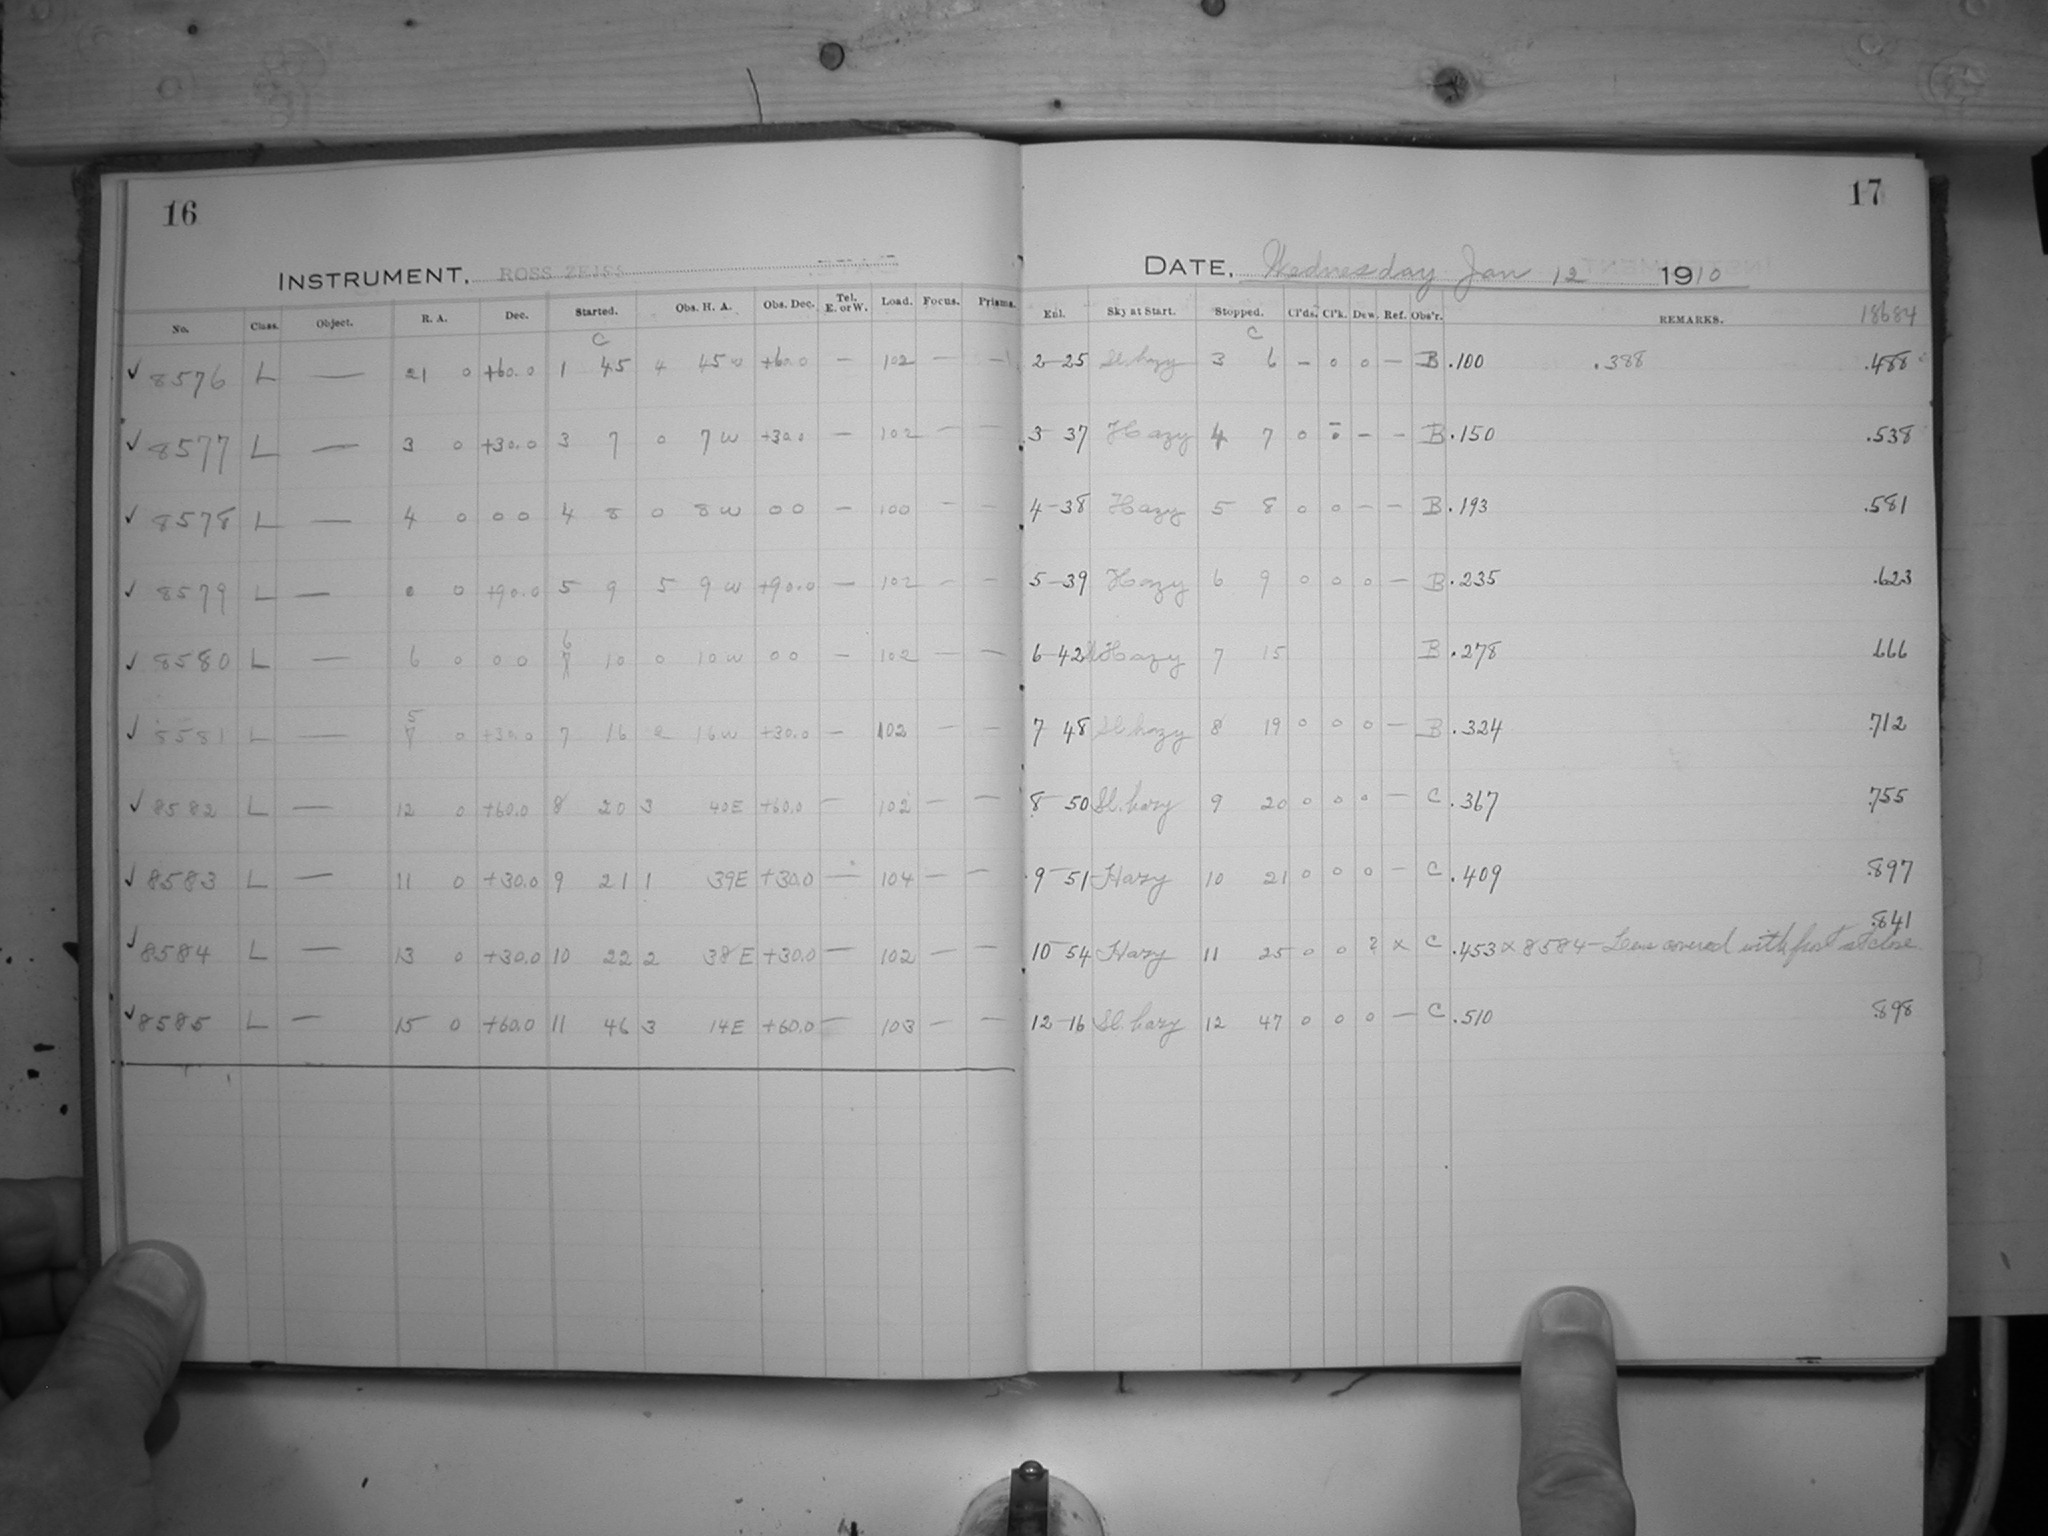 16
INSTRUMENT, ROSS ZEISS
No. Class. Object. R. A. Dec. Started. Obs. H. A. Obs. Dec. Tel. E. or W. Load. Focus. Prisms.
C
✓ 8576 L — 21 0 +60.0 1 45 4 45 W +60.0 — 102 — —
✓ 8577 L — 3 0 +30.0 3 7 0 7 W +30.0 — 102 — —
✓ 8578 L — 4 0 0 0 4 8 0 8 W 0 0 — 100 — —
✓ 8579 L — 0 0 +90.0 5 9 5 9 W +90.0 — 102 — —
✓ 8580 L — 6 0 0 0 6 10 0 10 W 0 0 — 102 — —
✓ 8581 L — 5 0 +30.0 7 16 2 16 W +30.0 — 102 — —
✓ 8582 L — 12 0 +60.0 8 20 3 40 E +60.0 — 102 — —
✓ 8583 L — 11 0 +30.0 9 21 1 39 E +30.0 — 104 — —
✓ 8584 L — 13 0 +30.0 10 22 2 38 E +30.0 — 102 — —
✓ 8585 L — 15 0 +60.0 11 46 3 14 E +60.0 — 103 — —
17
DATE, Wednesday Jan 12 1910
Enl. Sky at Start. Stopped. Cl'ds. Cl'k. Dew. Ref. Obs'r. REMARKS. 18684
C
2-25 Sl hazy 3 6 — 0 0 — B .100 .388 .488
3 37 Hazy 4 7 0 0 — — B .150 .538
4-38 Hazy 5 8 0 0 — — B .193 .581
5-39 Hazy 6 9 0 0 0 — B .235 .623
6-42 Hazy 7 15 B .278 .666
7 48 Sl hazy 8 19 0 0 0 — B .324 .712
8 50 Sl. hazy 9 20 0 0 0 — C .367 .755
9-51 Hazy 10 21 0 0 0 — C .409 .897
.841
10-54 Hazy 11 25 0 0 ? x C .453 x 8584 — Lens covered with frost at close.
12-16 Sl. hazy 12 47 0 0 0 — C .510 .898